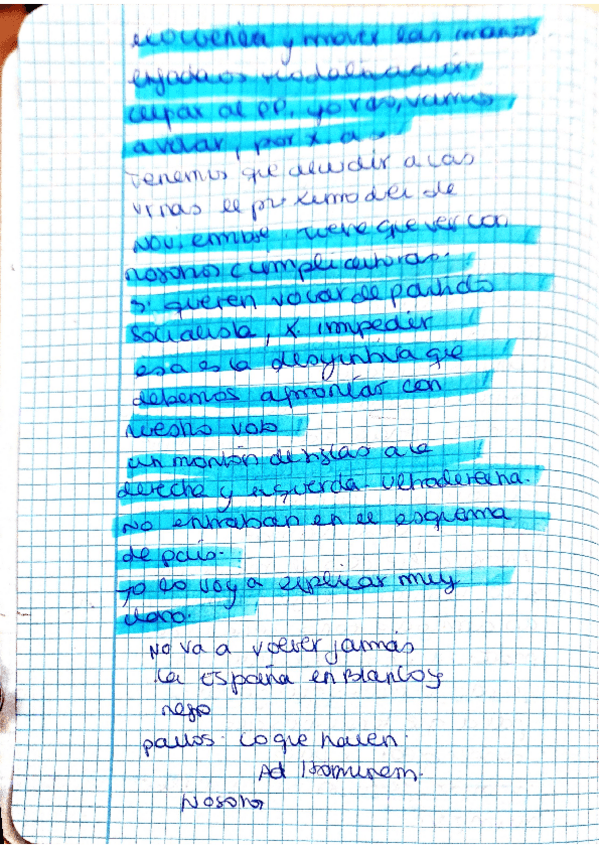 y mover las manos
culpar al PP. yo
a votar, por x. a
Tenemos que acudir a las
urnas el próximo dei de
Noviembre tiene que ver con
nosotros
si quieren votar de partido
socialista, x. impedir
esa es la disyuntiva que
debemos afrontar con
nuestro voto
un montón de listas a la
derecha y izquierda. ultraderecha.
No entraban en el esquema
de país.
yo lo voy a explicar muy
claro.
No va a volver jamás
la España en Blanco y
negro
lo que hacen.
Ad Hominem.
Nosotros